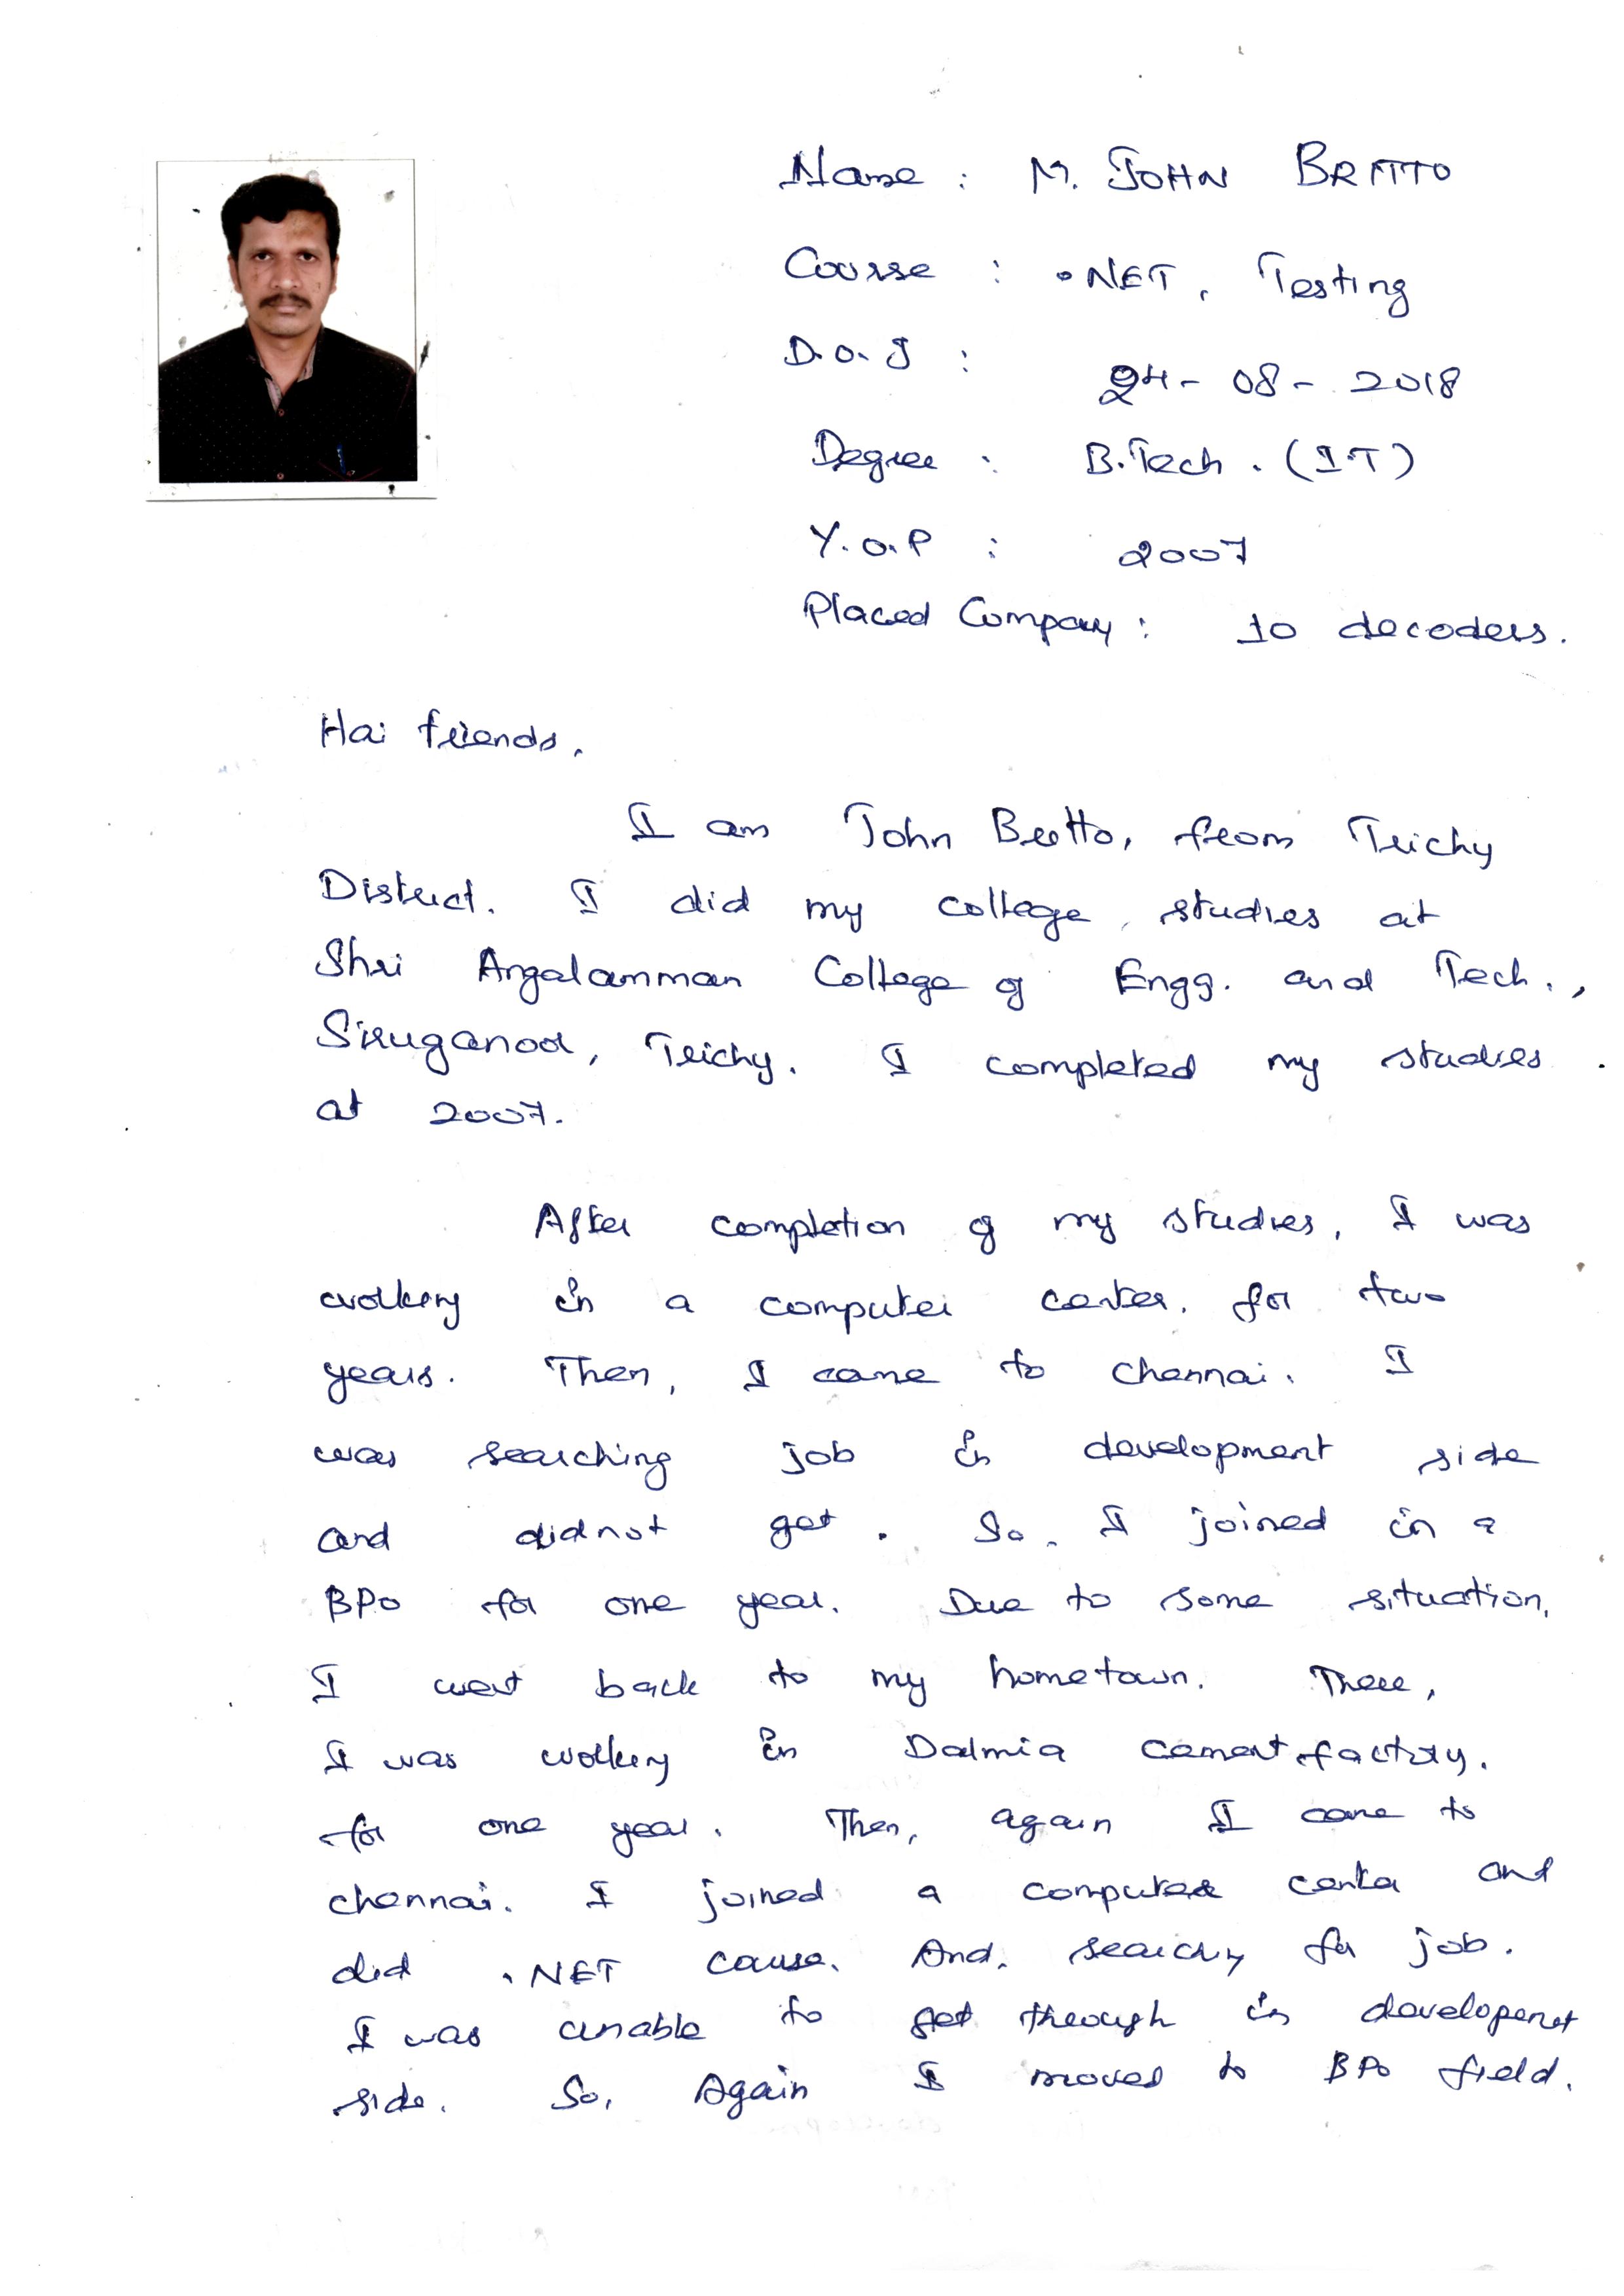 Name : M. JOHN BRITTO
Course : .NET, Testing
D.O.J : 24-08-2018
Degree : B.Tech. (I.T)
Y.O.P : 2007
Placed Company : 10 decoders.
Hai friends,
I am John Britto, from Trichy
District. I did my college, studies at
Shri Angalamman College of Engg. and Tech.,
Siruganoor, Trichy. I completed my studies
at 2007.
After completion of my studies, I was
working in a computer center. for two
years. Then, I came to chennai. I
was searching job in development side
and didnot get. So, I joined in a
BPO for one year. Due to some situation,
I went back to my hometown. There,
I was working in Dalmia cement factory.
for one year. Then, again I came to
chennai. I joined a computer center and
did .NET course. And, searching for job.
I was unable to get through in development
side. So, Again I moved to BPO field.